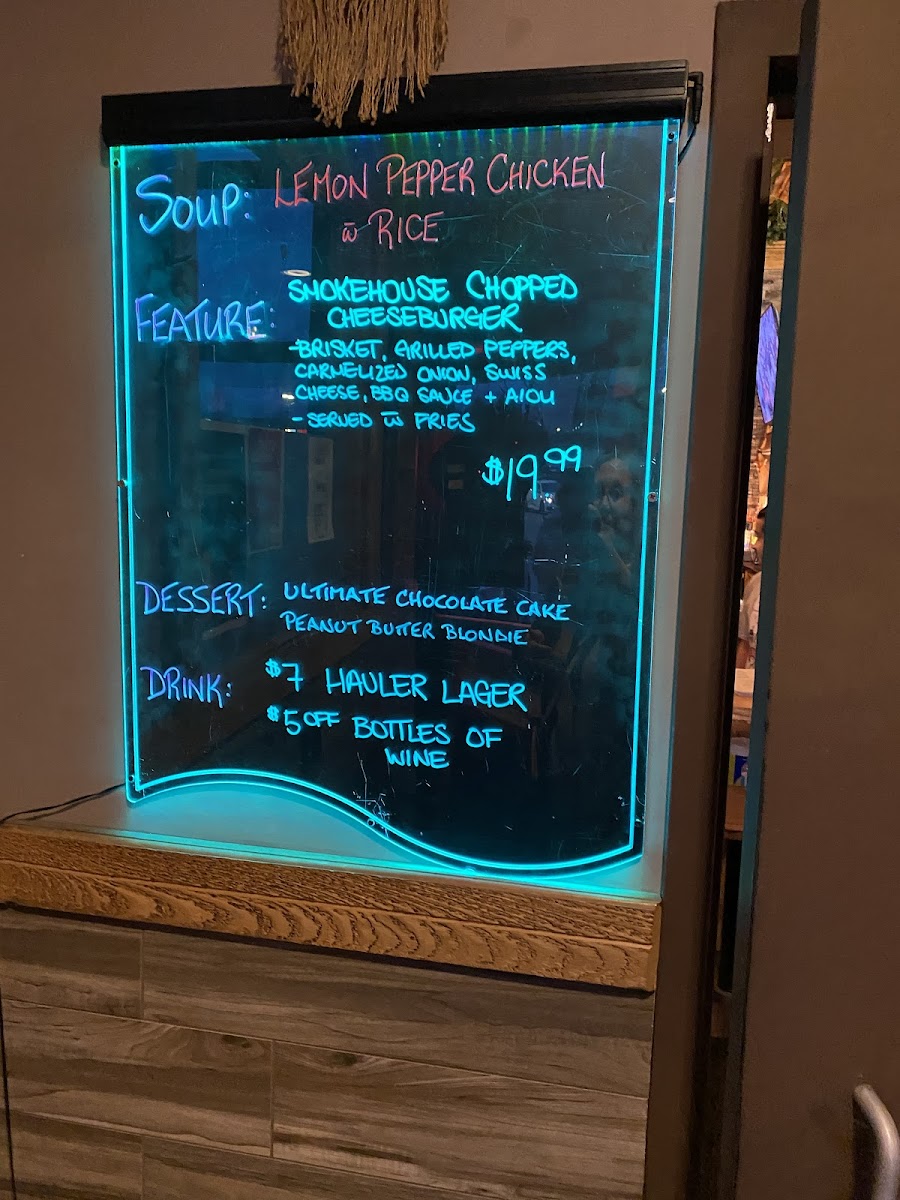 SOUP: LEMON PEPPER CHICKEN
w̅ RICE
FEATURE: SMOKEHOUSE CHOPPED
CHEESEBURGER
-BRISKET, GRILLED PEPPERS,
CARMELIZED ONION, SWISS
CHEESE, BBQ SAUCE + AIOLI
- SERVED w̅ FRIES
$19.99
DESSERT: ULTIMATE CHOCOLATE CAKE
PEANUT BUTTER BLONDIE
DRINK: $7 HAULER LAGER
$5 OFF BOTTLES OF
WINE